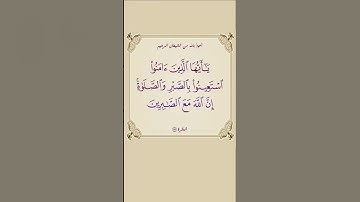 أعوذ بالله من الشيطان الرجيم
يَـٰٓأَيُّهَا ٱلَّذِينَ ءَامَنُوا۟
ٱسْتَعِينُوا۟ بِٱلصَّبْرِ وَٱلصَّلَوٰةِ ۚ
إِنَّ ٱللَّهَ مَعَ ٱلصَّـٰبِرِينَ
البقرة